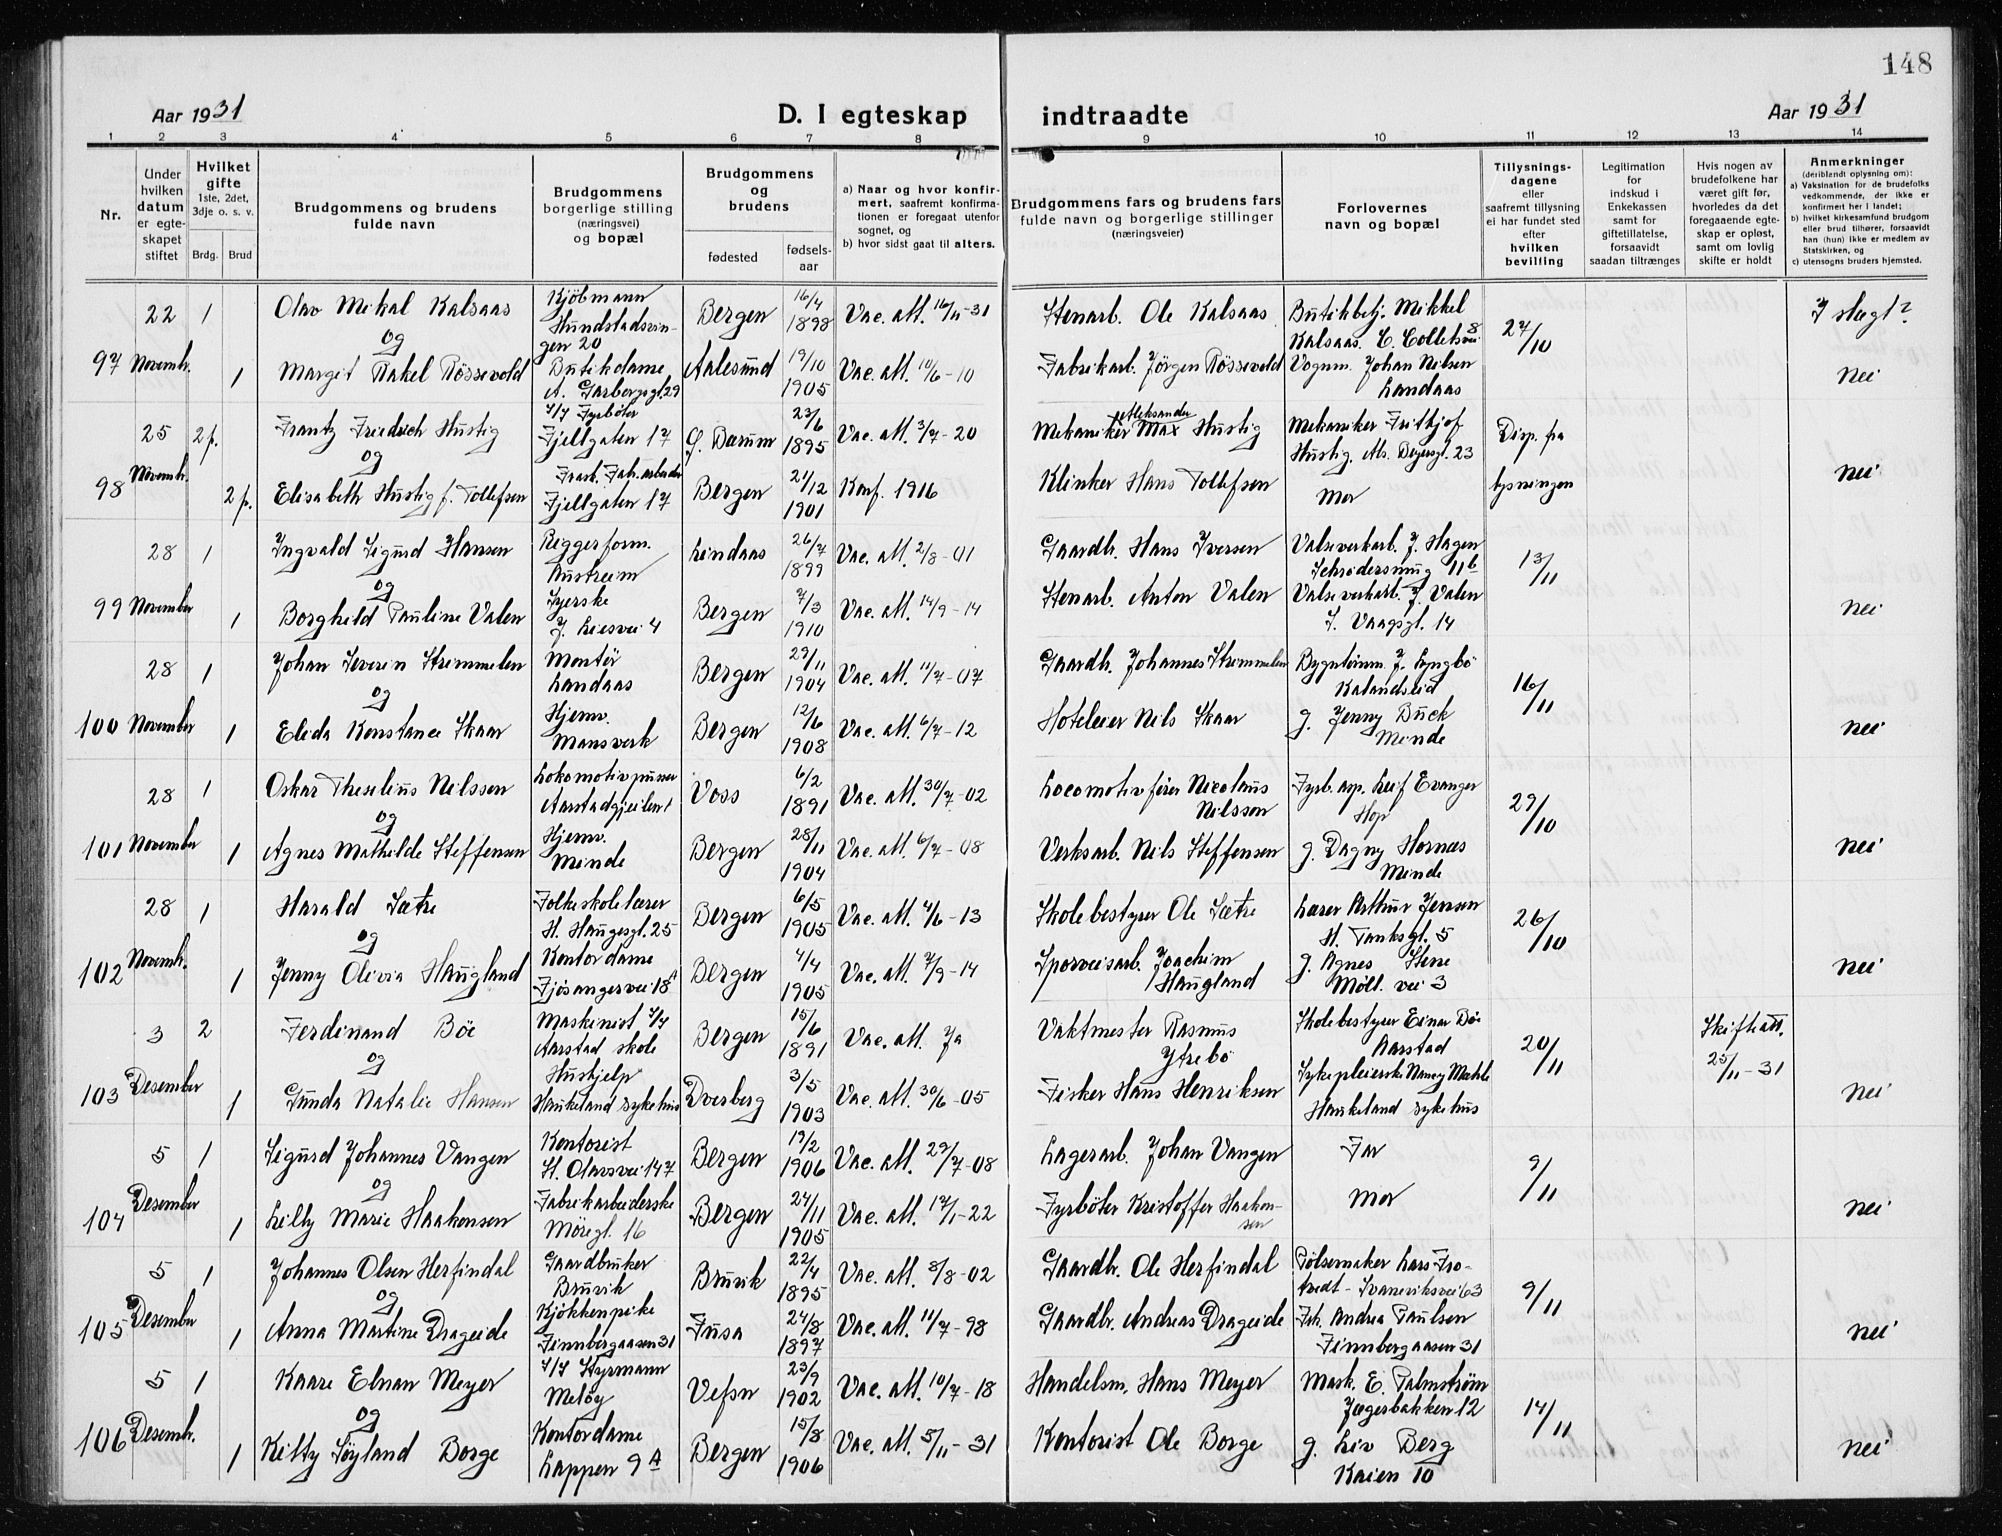 148
Aar 1931
D. I egteskap indtraadte
Aar 1931
1 2 3 4 5 6 7 8 9 10 11 12 13 14
Nr.
Under hvilken datum er egteskapet stiftet
Hvilket gifte 1ste, 2det, 3dje o. s. v.
Brdg. Brud
Brudgommens og brudens fulde navn
Brudgommens borgerlige stilling (næringsvei) og bopæl
Brudgommens og brudens
fødested
fødselsaar
a) Naar og hvor konfirmert, saafremt konfirmationen er foregaat utenfor sognet, og
b) hvor sidst gaat til alters.
Brudgommens fars og brudens fars fulde navn og borgerlige stillinger (næringsveier)
Forlovernes navn og bopæl
Tillysningsdagene eller saafremt tillysning ei har fundet sted efter hvilken bevilling
Legitimation for indskud i Enkekassen samt for giftetillatelse, forsaavidt saadan tiltrænges
Hvis nogen av brudefolkene har været gift før, hvorledes da det foregaaende egteskap er opløst, samt om lovlig skifte er holdt
Anmerkninger (deriblendt oplysning om):
a) Vaksination for de brudefolks vedkommende, der ikke er konfirmert her i landet;
b) hvilket kirkesamfund brudgom eller brud tilhører, forsaavidt han (hun) ikke er medlem av Statskirken, og
c) utensogns bruders hjemsted.
97 22 Novembr. 1 Olav Mikal Kalsaas Kjöbmann Hundstadsvingen 20 Bergen 16/4 1898 Vac. att. 16/11-31 Stenarb. Ole Kalsaas Butikbetj. Mikkel Kalsaas. C. Colletsvei 8 27/10 I slegt?
og
1 Margit Rakel Røssevold Butikdame A. Garborgsgt. 29 Aalesund 19/10 1905 Vac. att. 10/6-10 Fabrikarb. Jörgen Røssevold Vognm. Johan Nilsen Landaas nei
98 25 Novembr. 2 p. Frantz Friedrich Hustig S/S Fyrböter Fjellgaten 17 G. Darum 23/6 1895 Vac. att. 3/7-20 Mekaniker Max Aleksander Hustig Mekaniker Frithjof Hustig. Abs. Beyersgt. 23 Disp. fra
og
2 p. Elisabeth Hustig f. Tollefsen Frask. Fabr.arbeider Fjellgaten 17 Bergen 21/12 1901 Konf. 1916 Klinker Hans Tollefsen Mor lysningen nei
99 28 November 1 Ingvald Sigurd Hansen Riggerform. Austreim Lindaas 26/7 1899 Vac. att. 2/8-01 Gaardbr. Hans Iversen Valseverkarb. J. Hagen Schrødersmug 11b 13/11
og
1 Borghild Pauline Valen Syerske J. Liesvei 4 Bergen 7/3 1910 Vac. att. 14/9-14 Stenarb. Anton Valen Valseverkarb. J. Valen I. Vaagsgt. 14 nei
100 28 November 1 Johan Severin Strømmelen Montør Landaas Bergen 29/11 1904 Vac. att. 11/7-07 Gaardbr. Johannes Strømmelen Bygntömm. J. Lyngbö Kalandseid 16/11
og
1 Eleda Konstance Skaar Hjemv. Mansverk Bergen 12/6 1908 Vac. att. 6/7-12 Hoteleier Nils Skaar g. Jenny Buck Minde nei
101 28 November 1 Oskar Theselius Nilssen Lokomotivpusser Aarstadgjeilen 1 Voss 6/2 1891 Vac. att. 30/7-02 Locomotivfører Nicolaus Nilsson Fyrb. asp. Leif Evanger Hop 29/10
og
1 Agnes Mathilde Steffensen Hjemv. Minde Bergen 28/11 1904 Vac. att. 6/7-08 Verksarb. Nils Steffensen g. Dagny Hornæs Minde nei
102 28 Novembr. 1 Harald Sætre Folkeskolelærer H. Haugesgt. 25 Bergen 6/5 1905 Vac. att. 4/6-13 Skolebestyrer Ole Sætre Lærer Arthur Jensen H. Tanksgt. 5 26/10
og
1 Jenny Olivia Haugland Kontordame Fjösangervei 18A Bergen 4/4 1905 Vac. att. 7/9-14 Sporveisarb. Joachim Haugland g. Agnes Stene Möll. vei 3 nei
103 3 Desember 2 Ferdinand Böe Maskinist S/S Aarstad skole Bergen 15/6 1891 Vac. att. Ja Vaktmester Rasmus Ytrebö Skolebestyrer Einar Böe Aarstad 20/11 Skifteatt. 25/11-31
og
1 Gunda Natalie Hansen Hushjelp Haukeland sykehus Dverberg 3/5 1903 Vac. att. 30/6-05 Fisker Hans Henriksen Sykepleierske Nancy Mæhle Haukeland sykehus nei
104 5 Desember 1 Sigurd Johannes Vangen Kontorist St. Olavsvei 147 Bergen 19/2 1906 Vac. att. 29/7-08 Lagerarb. Johan Vangen Far 9/11
og
1 Lilly Marie Haakonsen Fabrikarbeiderske Møregt. 16 Bergen 24/11 1905 Vac. att. 17/1-22 Fyrböter Kristoffer Haakonsen Mor nei
105 5 Desember 1 Johannes Olsen Herfindal Gaardbruker Bruvik Bruvik 22/4 1895 Vac. att. 8/8-02 Gaardbr. Ole Herfindal Pølsemaker Lars Frotvedt - Svaneviksvei 63 9/11
og
1 Anna Martine Drageide Kjökkenpike Finnbergaasen 31 Fusa 24/8 1897 Vac. att. 11/7-98 Gaardbr. Andreas Drageide Frk. Andrea Paulsen Finnbergaasen 31 nei
106 5 Desembr. 1 Kaare Elnan Meyer S/S Styrmann Meløy Vefsn 23/9 1902 Vac. att. 10/7-18 Handelsm. Hans Meyer Mask. E. Palmstrøm Jægerbakken 12 14/11
og
1 Kitty Söyland Borge Kontordame Lappen 9A Bergen 15/8 1906 Vac. att. 5/11-31 Kontorist Ole Borge g. Liv Berg Kaien 10 nei